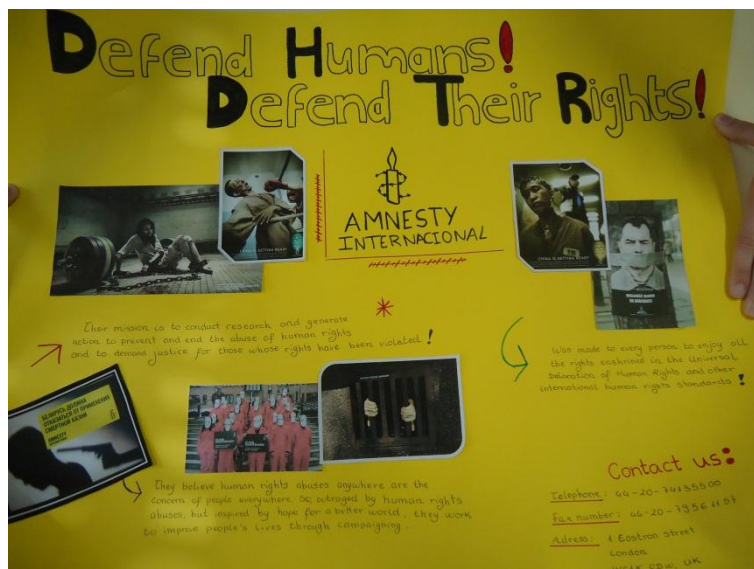 Defend Humans!
Defend Their Rights!
AMNESTY
INTERNACIONAL
CHINA IS GETTING READY
CHINA IS GETTING READY
Their mission is to conduct research and generate
action to prevent and end the abuse of human rights
and to demand justice for those whose rights have been violated!
Was made to every person to enjoy all
the rights enshrined in the Universal
Declaration of Human Rights and other
international human rights standards!
БЕЛАРУСЬ ДОЛЖНА
ОТКАЗАТЬСЯ ОТ ПРИМЕНЕНИЯ
СМЕРТНОЙ КАЗНИ
AMNESTY
They believe human rights abuses anywhere are the
concern of people everywhere. So, outraged by human rights
abuses, but inspired by hope for a better world, they work
to improve people's lives through campaigning.
Contact us:
Telephone: 44-20-74135500
Fax number: 44-20-7956 1157
Adress: 1 Eastron street
London
UK